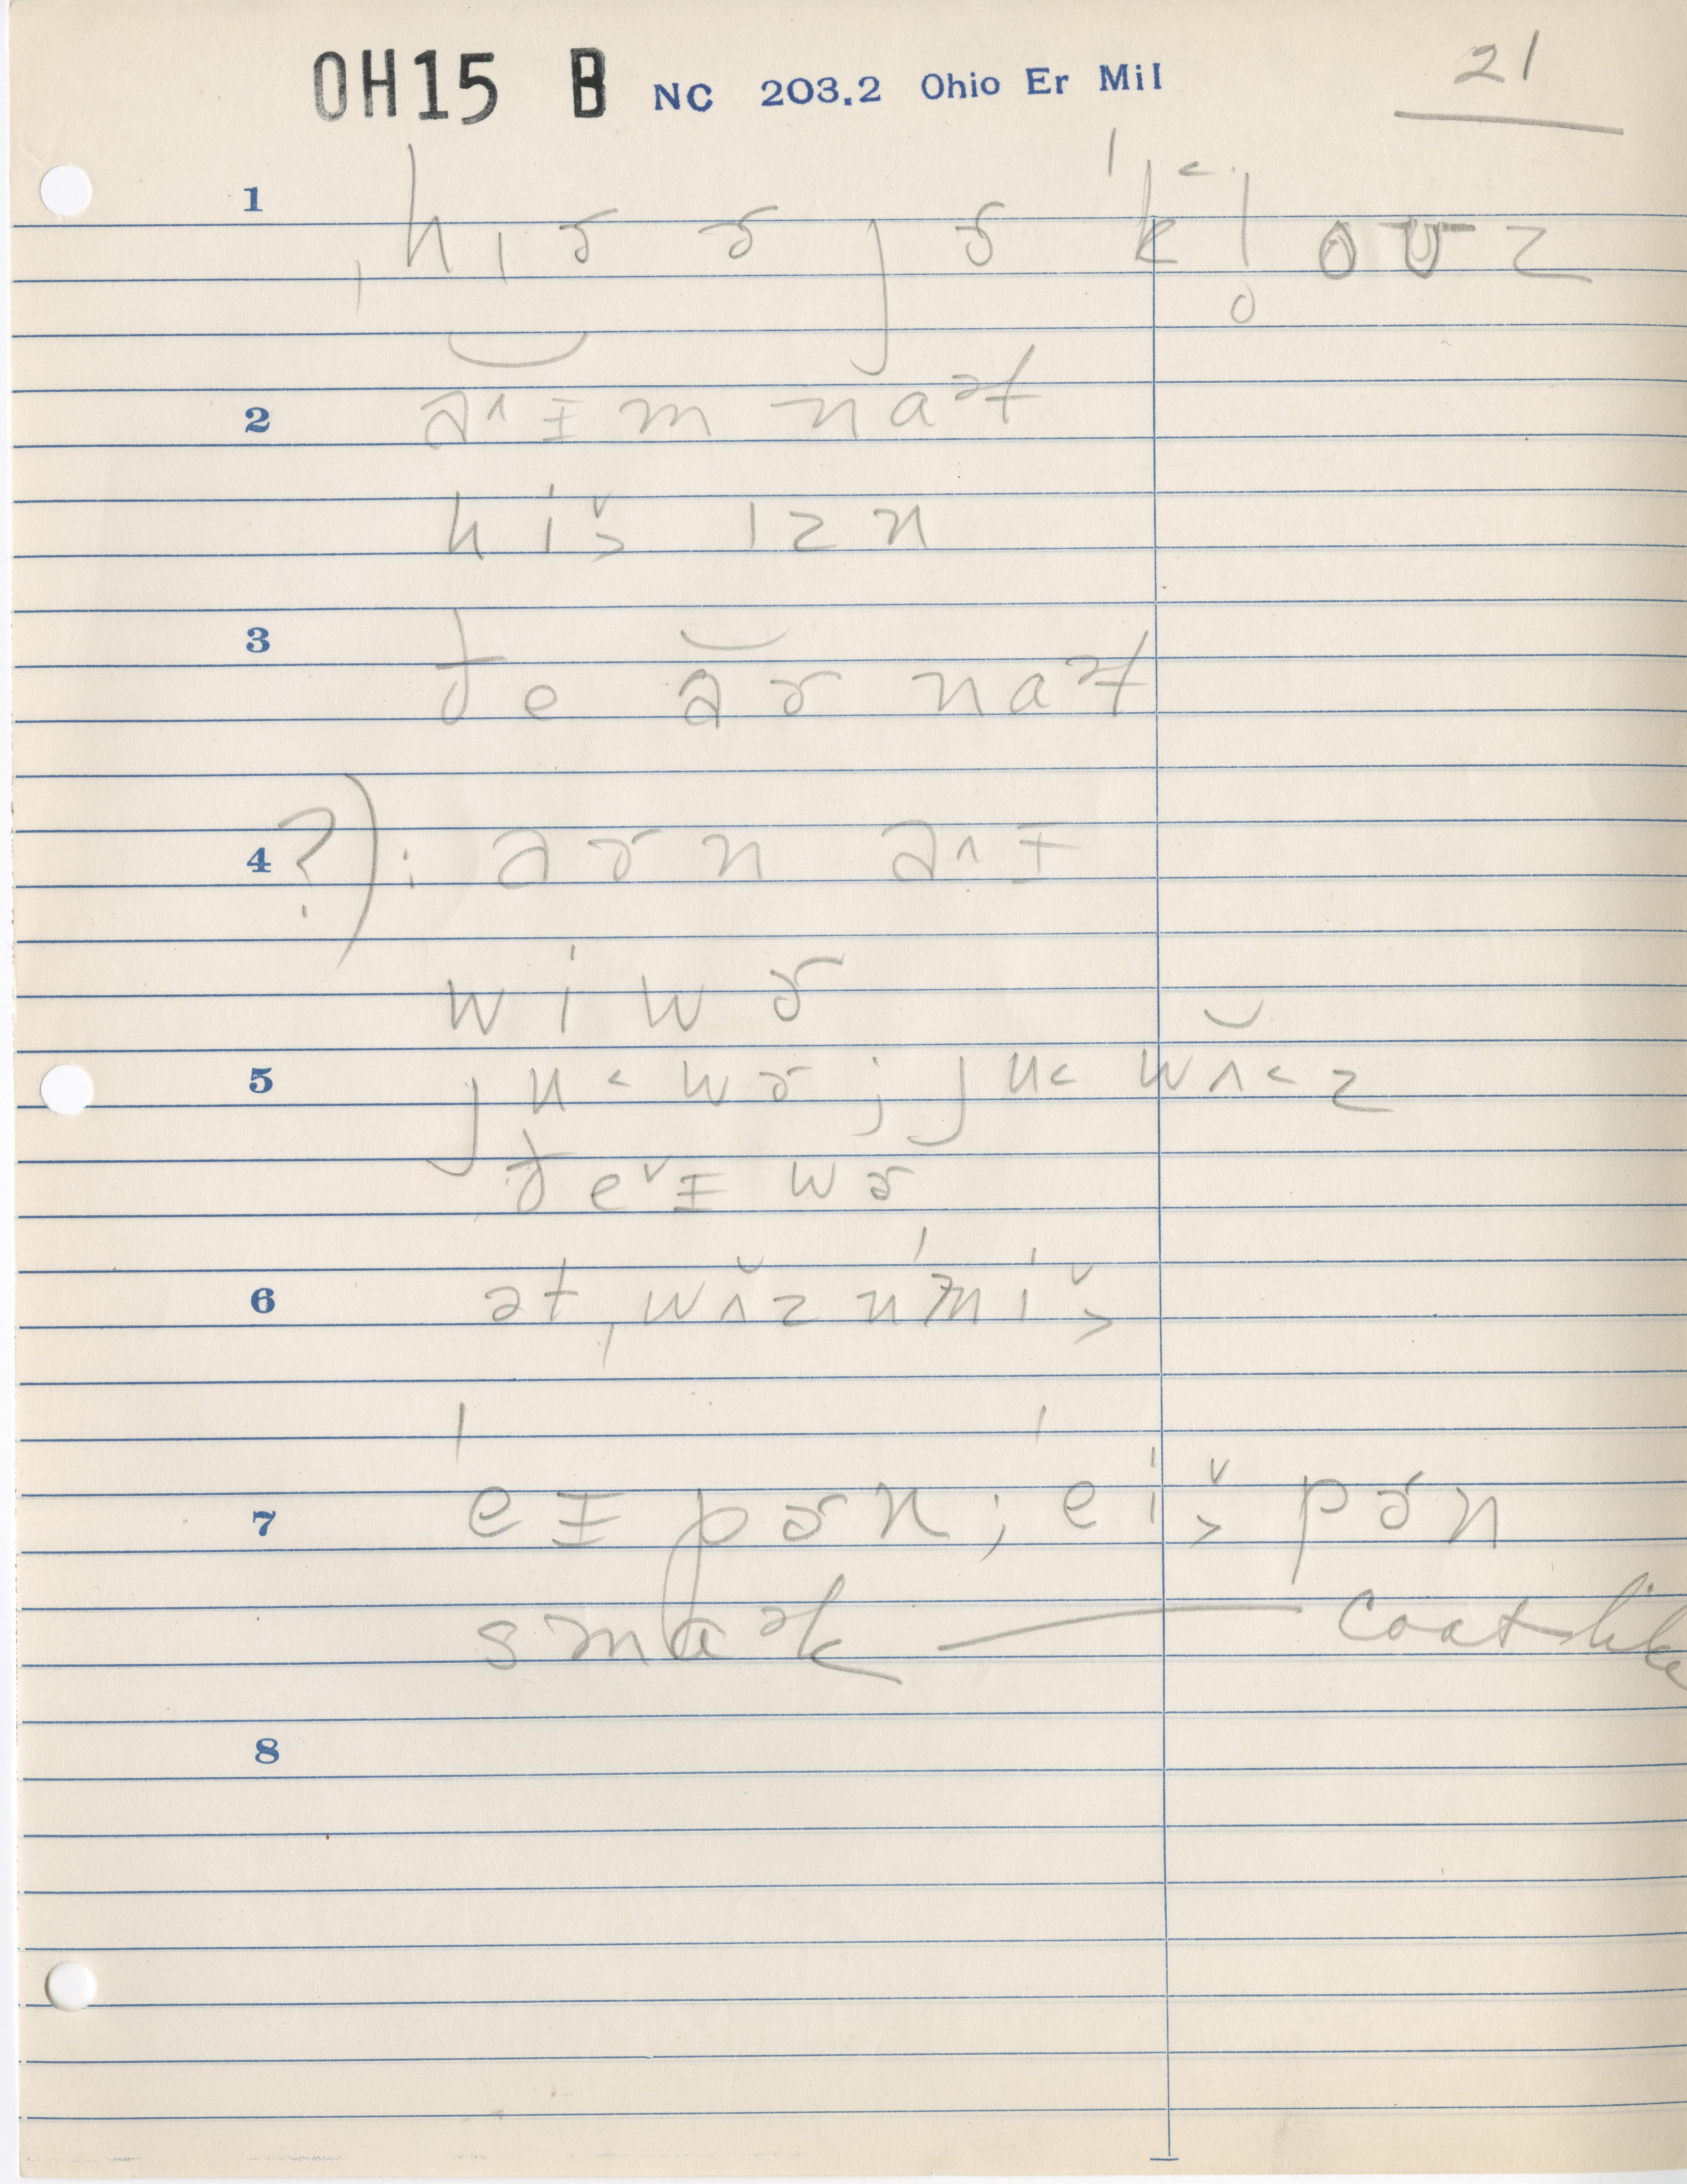 OH15 B NC 203.2 Ohio Er Mil 21
1 ˌhɪɚ ɚ jɚ ˈk˂l̥oʊz
2 a˄ɪm naət
hi˅˃ ɪzn
3 ðe aɚ naət
4 ?): aɚn a˄ɪ
wiwɚ
5 ju˂ wɚ; ju˂ wʌ̆˂z
ðe˅ɪ wɚ
6 ət ˌwʌ̆zn̩ˈmi˅˃
7 ˈeɪpɚn; ˈei˅˃pɚn
smaək — Coat like
8